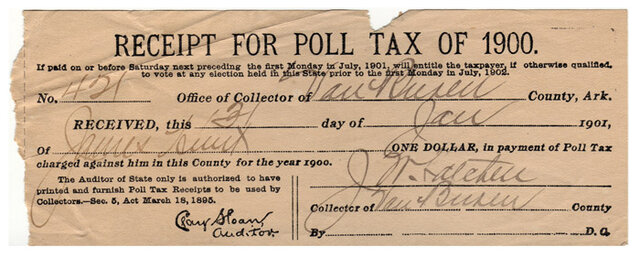 RECEIPT FOR POLL TAX OF 1900.
If paid on or before Saturday next preceding the first Monday in July, 1901, will entitle the taxpayer, if otherwise qualified,
to vote at any election held in this State prior to the first Monday in July, 1902.
No. 421 Office of Collector of Van Buren County, Ark.
RECEIVED, this 31 day of Jan 1901,
Of James ONE DOLLAR, in payment of Poll Tax
charged against him in this County for the year 1900.
The Auditor of State only is authorized to have
printed and furnish Poll Tax Receipts to be used by
Collectors.—Sec. 5, Act March 18, 1895.
Clay Sloan
Auditor.
J. W.
Collector of Van Buren County
By D. C.